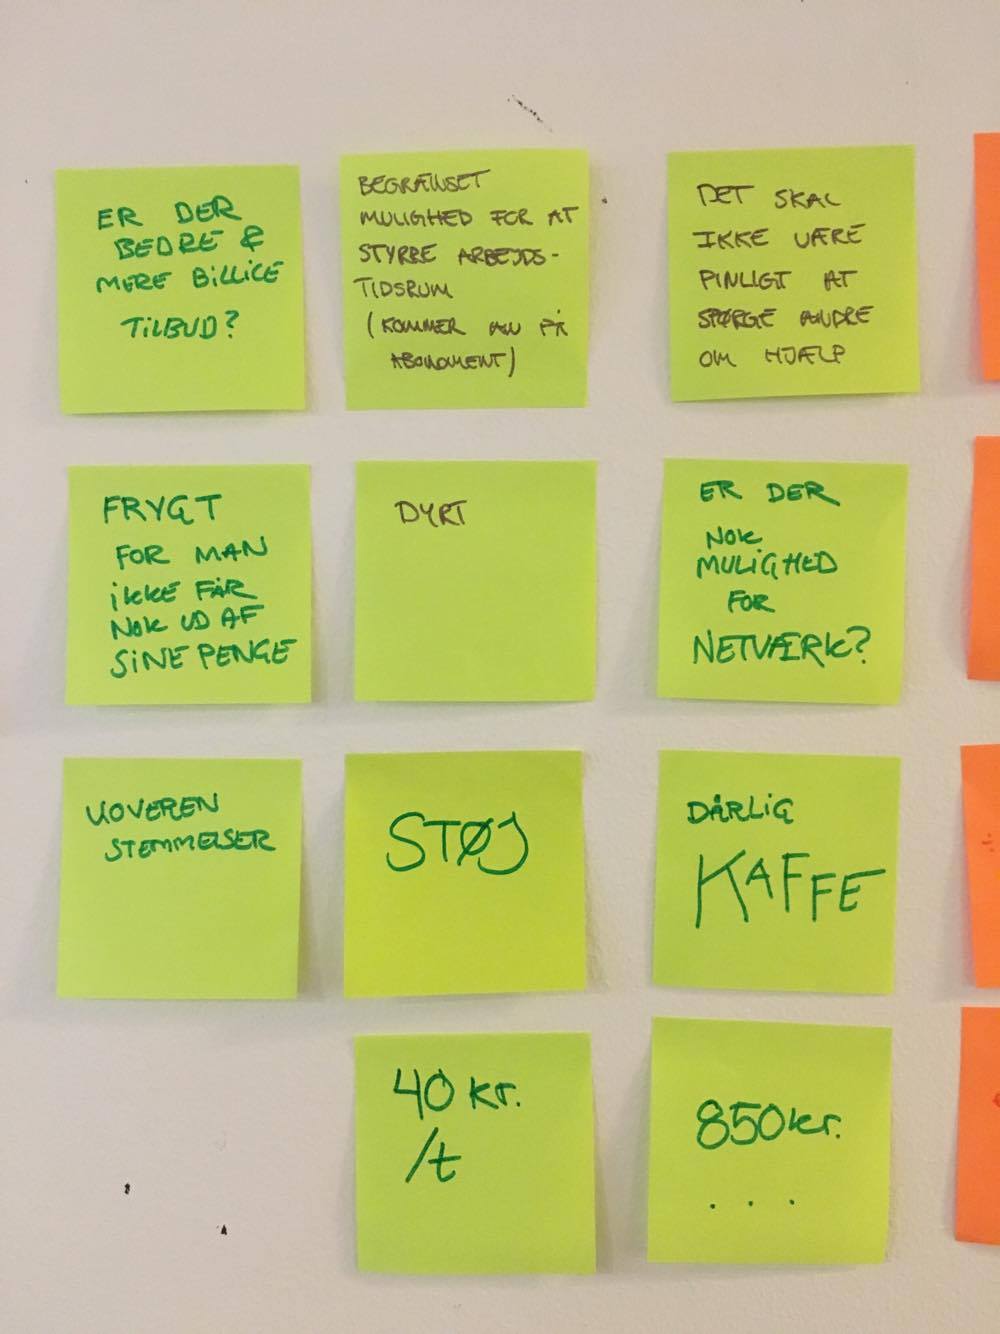 ER DER
BEDRE &
MERE BILLIGE
TILBUD?
BEGRÆNSET
MULIGHED FOR AT
STYRRE ARBEJDS-
TIDSRUM
(KOMMER AN PÅ
ABONOMENT)
DET SKAL
IKKE VÆRE
PINLIGT AT
SPØRGE ANDRE
OM HJÆLP
FRYGT
FOR MAN
IKKE FÅR
NOK UD AF
SINE PENGE
DYRT
ER DER
NOK
MULIGHED
FOR
NETVÆRK?
UOVEREN
STEMMELSER
STØJ
DÅRLIG
KAFFE
40 kr.
/t
850kr.
...